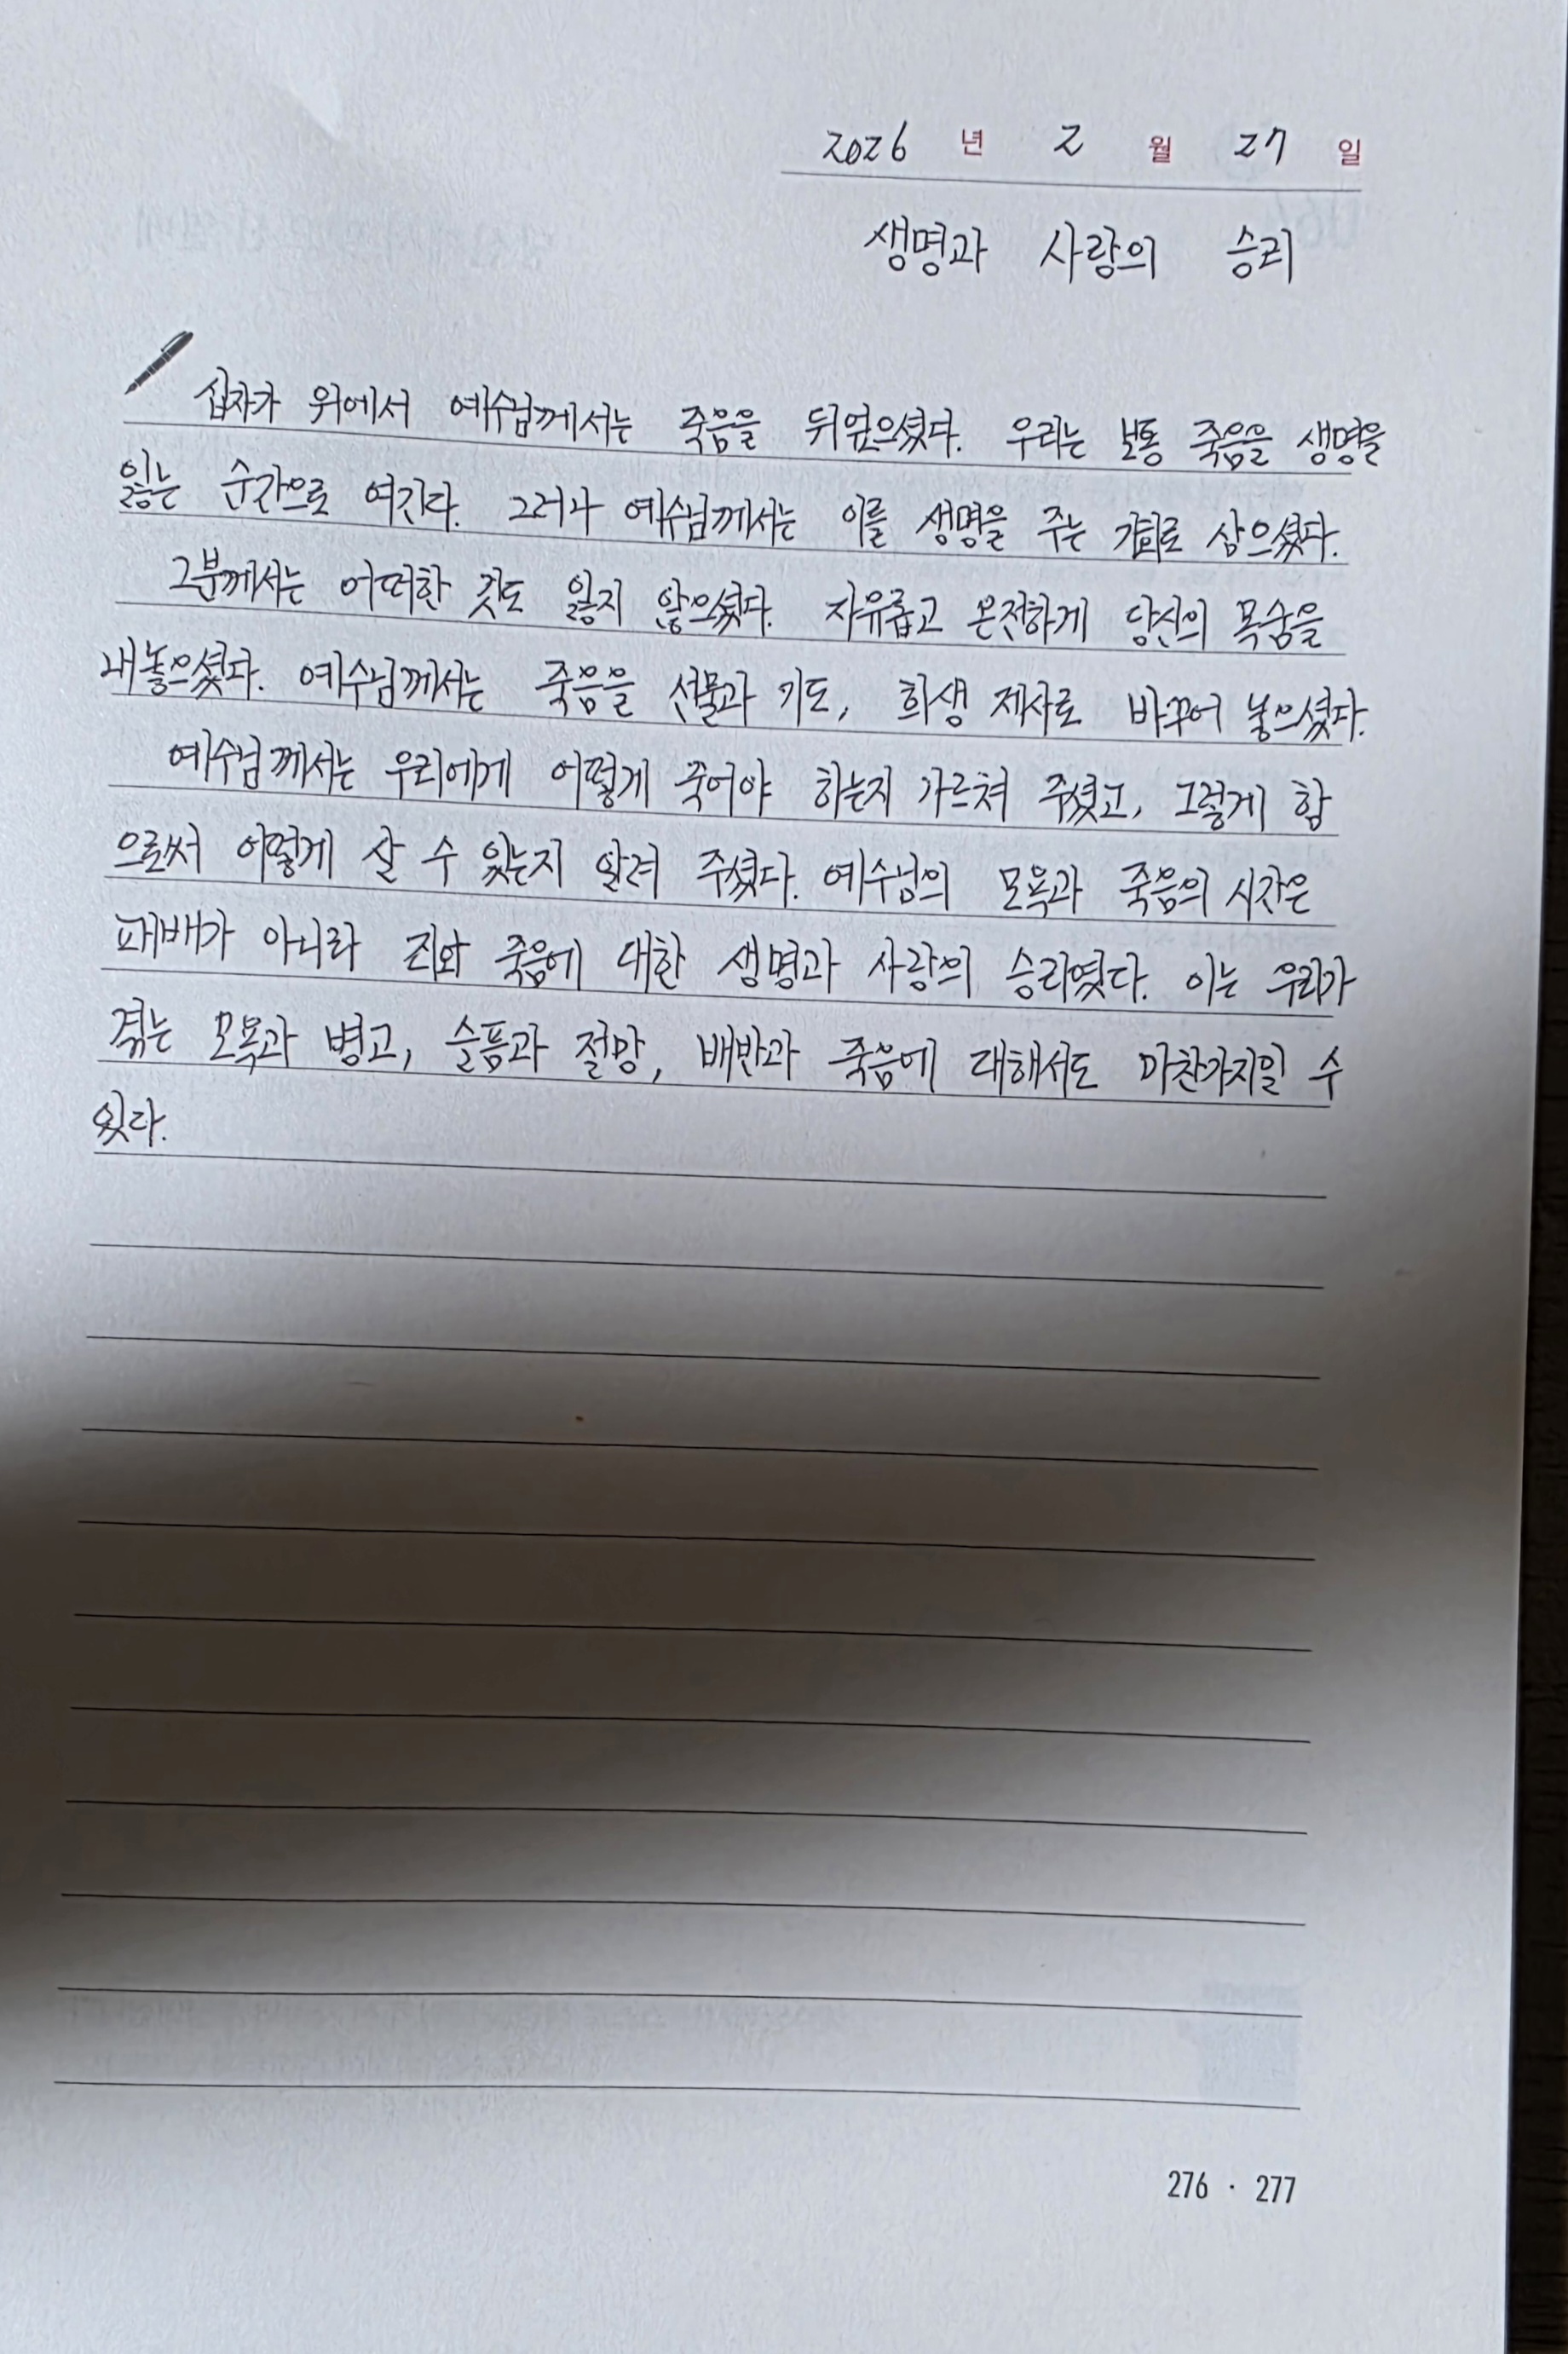 2026 년 2 월 27 일
생명과 사랑의 승리
십자가 위에서 예수님께서는 죽음을 뒤엎으셨다. 우리는 보통 죽음을 생명을
잃는 순간으로 여긴다. 그러나 예수님께서는 이를 생명을 주는 기회로 삼으셨다.
그분께서는 어떠한 것도 잃지 않으셨다. 자유롭고 온전하게 당신의 목숨을
내놓으셨다. 예수님께서는 죽음을 선물과 기도, 희생 제사로 바꾸어 놓으셨다.
예수님께서는 우리에게 어떻게 죽어야 하는지 가르쳐 주셨고, 그렇게 함
으로써 어떻게 살 수 있는지 알려 주셨다. 예수님의 모욕과 죽음의 시간은
패배가 아니라 죄와 죽음에 대한 생명과 사랑의 승리였다. 이는 우리가
겪는 모욕과 병고, 슬픔과 절망, 배반과 죽음에 대해서도 마찬가지일 수
있다.
276 · 277